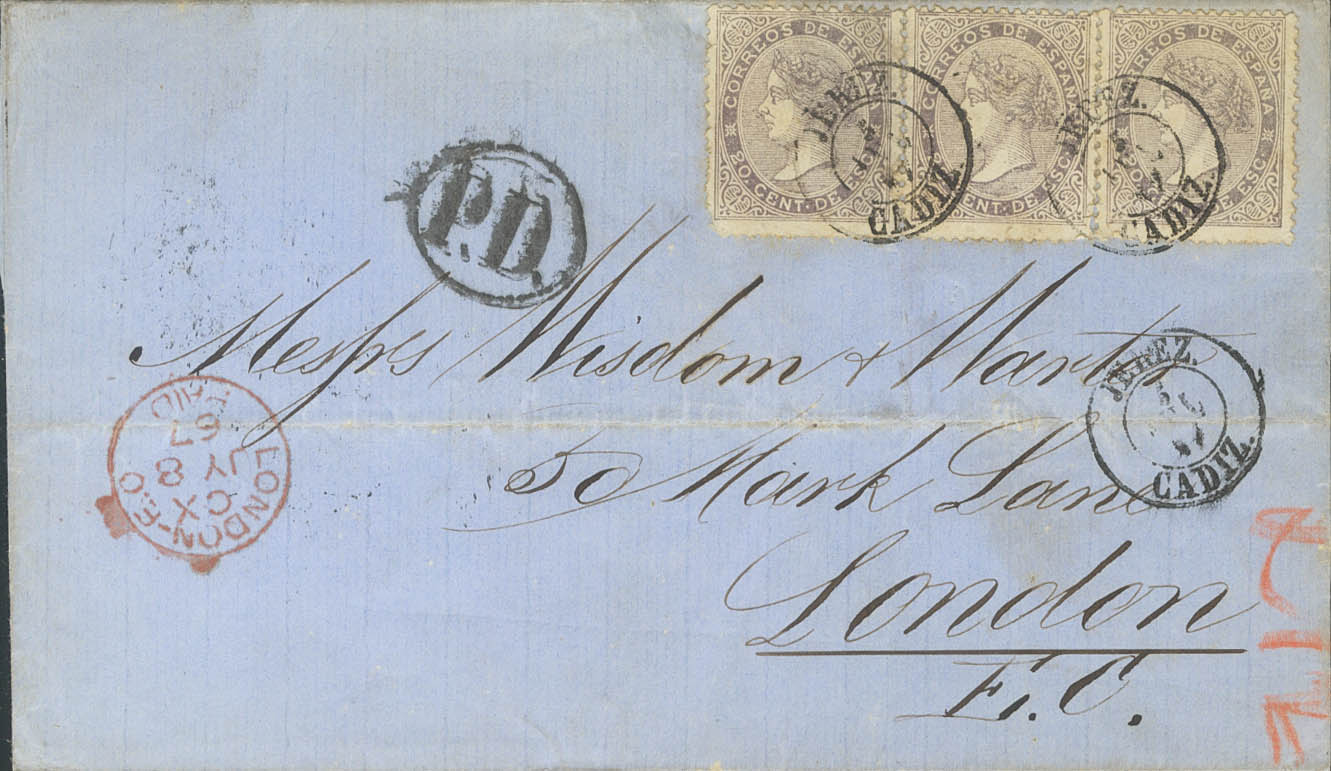 CORREOS DE ESPAÑA
20 CENT. DE
CORREOS DE ESPAÑA
CENT. DE ESC.
CORREOS DE ESPAÑA
DE ESC.
JEREZ.
CADIZ.
JEREZ.
CADIZ.
P.D.
Messrs Wisdom & Warter
50 Mark Lane
London
E.C.
JEREZ.
CADIZ.
LONDON-E.C
CX
JY 8
67
PAID